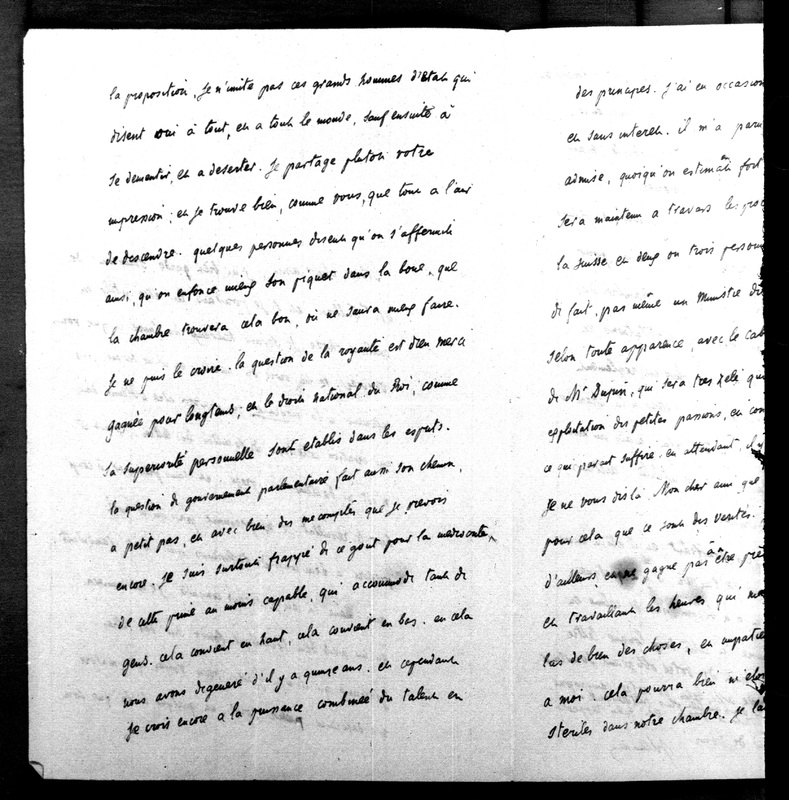 la proposition. Je n'imite pas ces grands hommes d'etat qui
disent oui à tout, et a tout le monde, sauf ensuite à
se dementir, et a deserter. Je partage plutot votre
impression ; et je trouve bien, comme vous, que tout a l'air
de descendre. quelques personnes disent qu'on s'affermit
ainsi, qu'on enfonce mieux son piquet dans la boue, que
la chambre trouvera cela bon, ou ne saura mieux faire.
Je ne puis le croire. la question de la royauté est Dieu merci
gagnée pour longtems ; et le droit national du Roi, comme
sa superiorité personnelle sont etablis dans les esprits.
la question de gouvernement parlementaire fait aussi son chemin,
a petit pas, et avec bien des mecomptes que je prevois
encore. Je suis surtout frappé de ce gout pour la mediocrité,
de cette prime au moins capable, qui accommode tant de
gens. cela convient en haut, cela convient en bas. en cela
nous avons degeneré d'il y a quinze ans. et cependant
je crois encore a la puissance combinée du talent et
des principes. J'ai eu occasion
et sans interet. il m'a paru
admise, quoiqu'on estimât fort
sera maintenu a travers les
la Suisse et deux ou trois
de fait. pas même un Ministre
selon toute apparence, avec le
de Mr Dupin, qui sera tres zelé
exploitation des petites passions, et
ce qui parait suffire. en attendant,
Je ne vous dis là Mon cher ami que
pour cela que ce sont des verités.
d'ailleurs, on ne gagne pas à être
et travaillant les heures qui
las de bien des choses, et
a moi. cela pourra bien
steriles dans notre chambre. Je